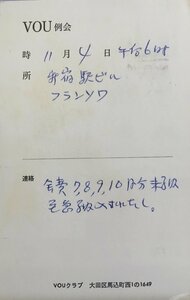 VOU例会
時 11月4日 午后6時
所 新宿駅ビル
フランソワ
連絡
会費7,8,9,10月分未納
VOUクラブ 大田区馬込町西1の1649